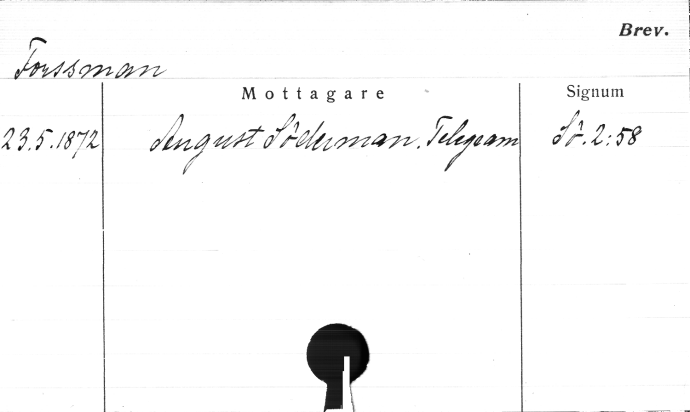 Brev.
Forssman
Mottagare Signum
23.5.1872 August Söderman. Telegram Sö. 2:58